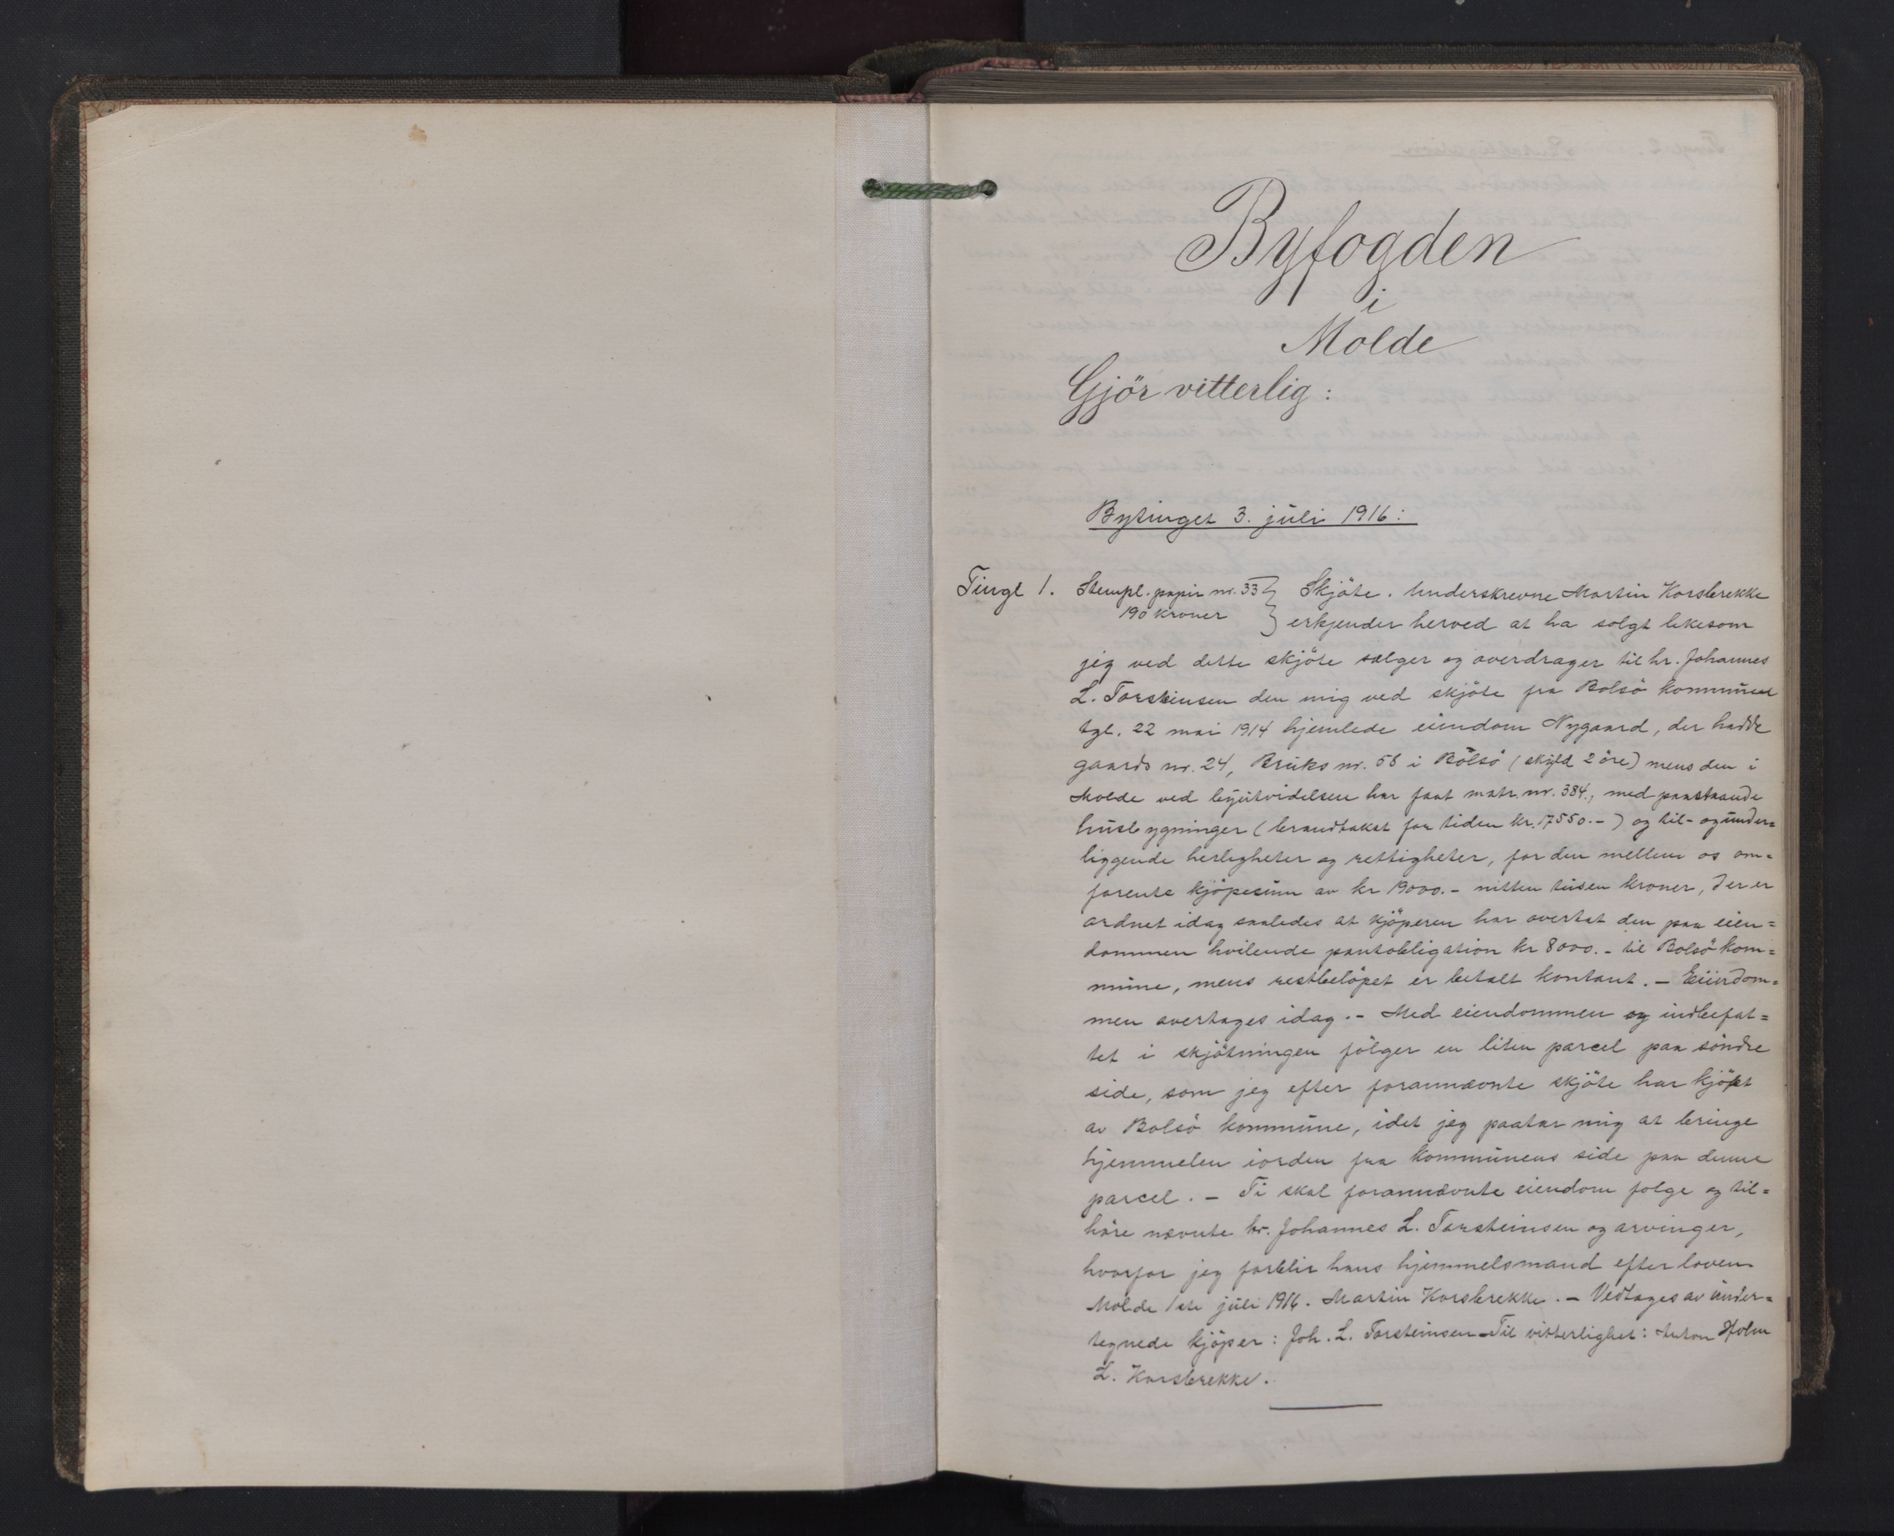 Byfogden
i
Molde
Gjör vitterlig:
Bytinget 3. juli 1916:
Tingl 1. Stempl. papir nr. 33 } Skjöte. Underskrevne Martin Korsbrekke
190 kroner } erkjender herved at ha solgt likesom
jeg ved dette skjöte sælger og overdrager til hr. Johannes
L. Torsteinsen den mig ved skjöte fra Bolsö kommune
tgl. 22 mai 1914 hjemlede eiendom Nygaard, der hadde
gaards nr. 24, Bruks nr. 58 i Bolsö (skyld 2 öre) mens den i
Molde ved byutvidelsen har faat matr. nr. 384, med paastaaende
husbygninger (brandtakst for tiden kr. 17550.-) og til- og under=
liggende herligheter og rettigheter, for den mellem os om=
forente kjöpesum av kr 19000.- nitten tusen kroner, der er
ordnet idag saaledes at kjöperen har overtat den paa eien=
dommen hvilende pantobligation kr 8000.- til Bolsö kom=
mune, mens restbelöpet er betalt kontant. - Eiendom=
men overtages idag. - Med eiendommen og indbefat=
tet i skjötningen fölger en liten parcel paa söndre
side, som jeg efter forannævnte skjöte har kjöpt
av Bolsö kommune, idet jeg paatar mig at bringe
hjemmelen iorden fra kommunens side paa denne
parcel. - Ti skal forannævnte eiendom følge og til=
höre nævnte hr. Johannes L. Torsteinsen og arvinger,
hvorfor jeg forblir hans hjemmelsmand efter loven.
Molde 1ste juli 1916. Martin Korsbrekke. - Vedtages av under=
tegnede kjöper: Joh. L. Torsteinsen - Til vitterlighet: Anton Holm
L. Korsbrekke.